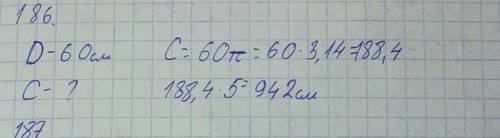 186.
D-60см C=60π=60·3,14788,4
C-? 188,4·5=942см
187